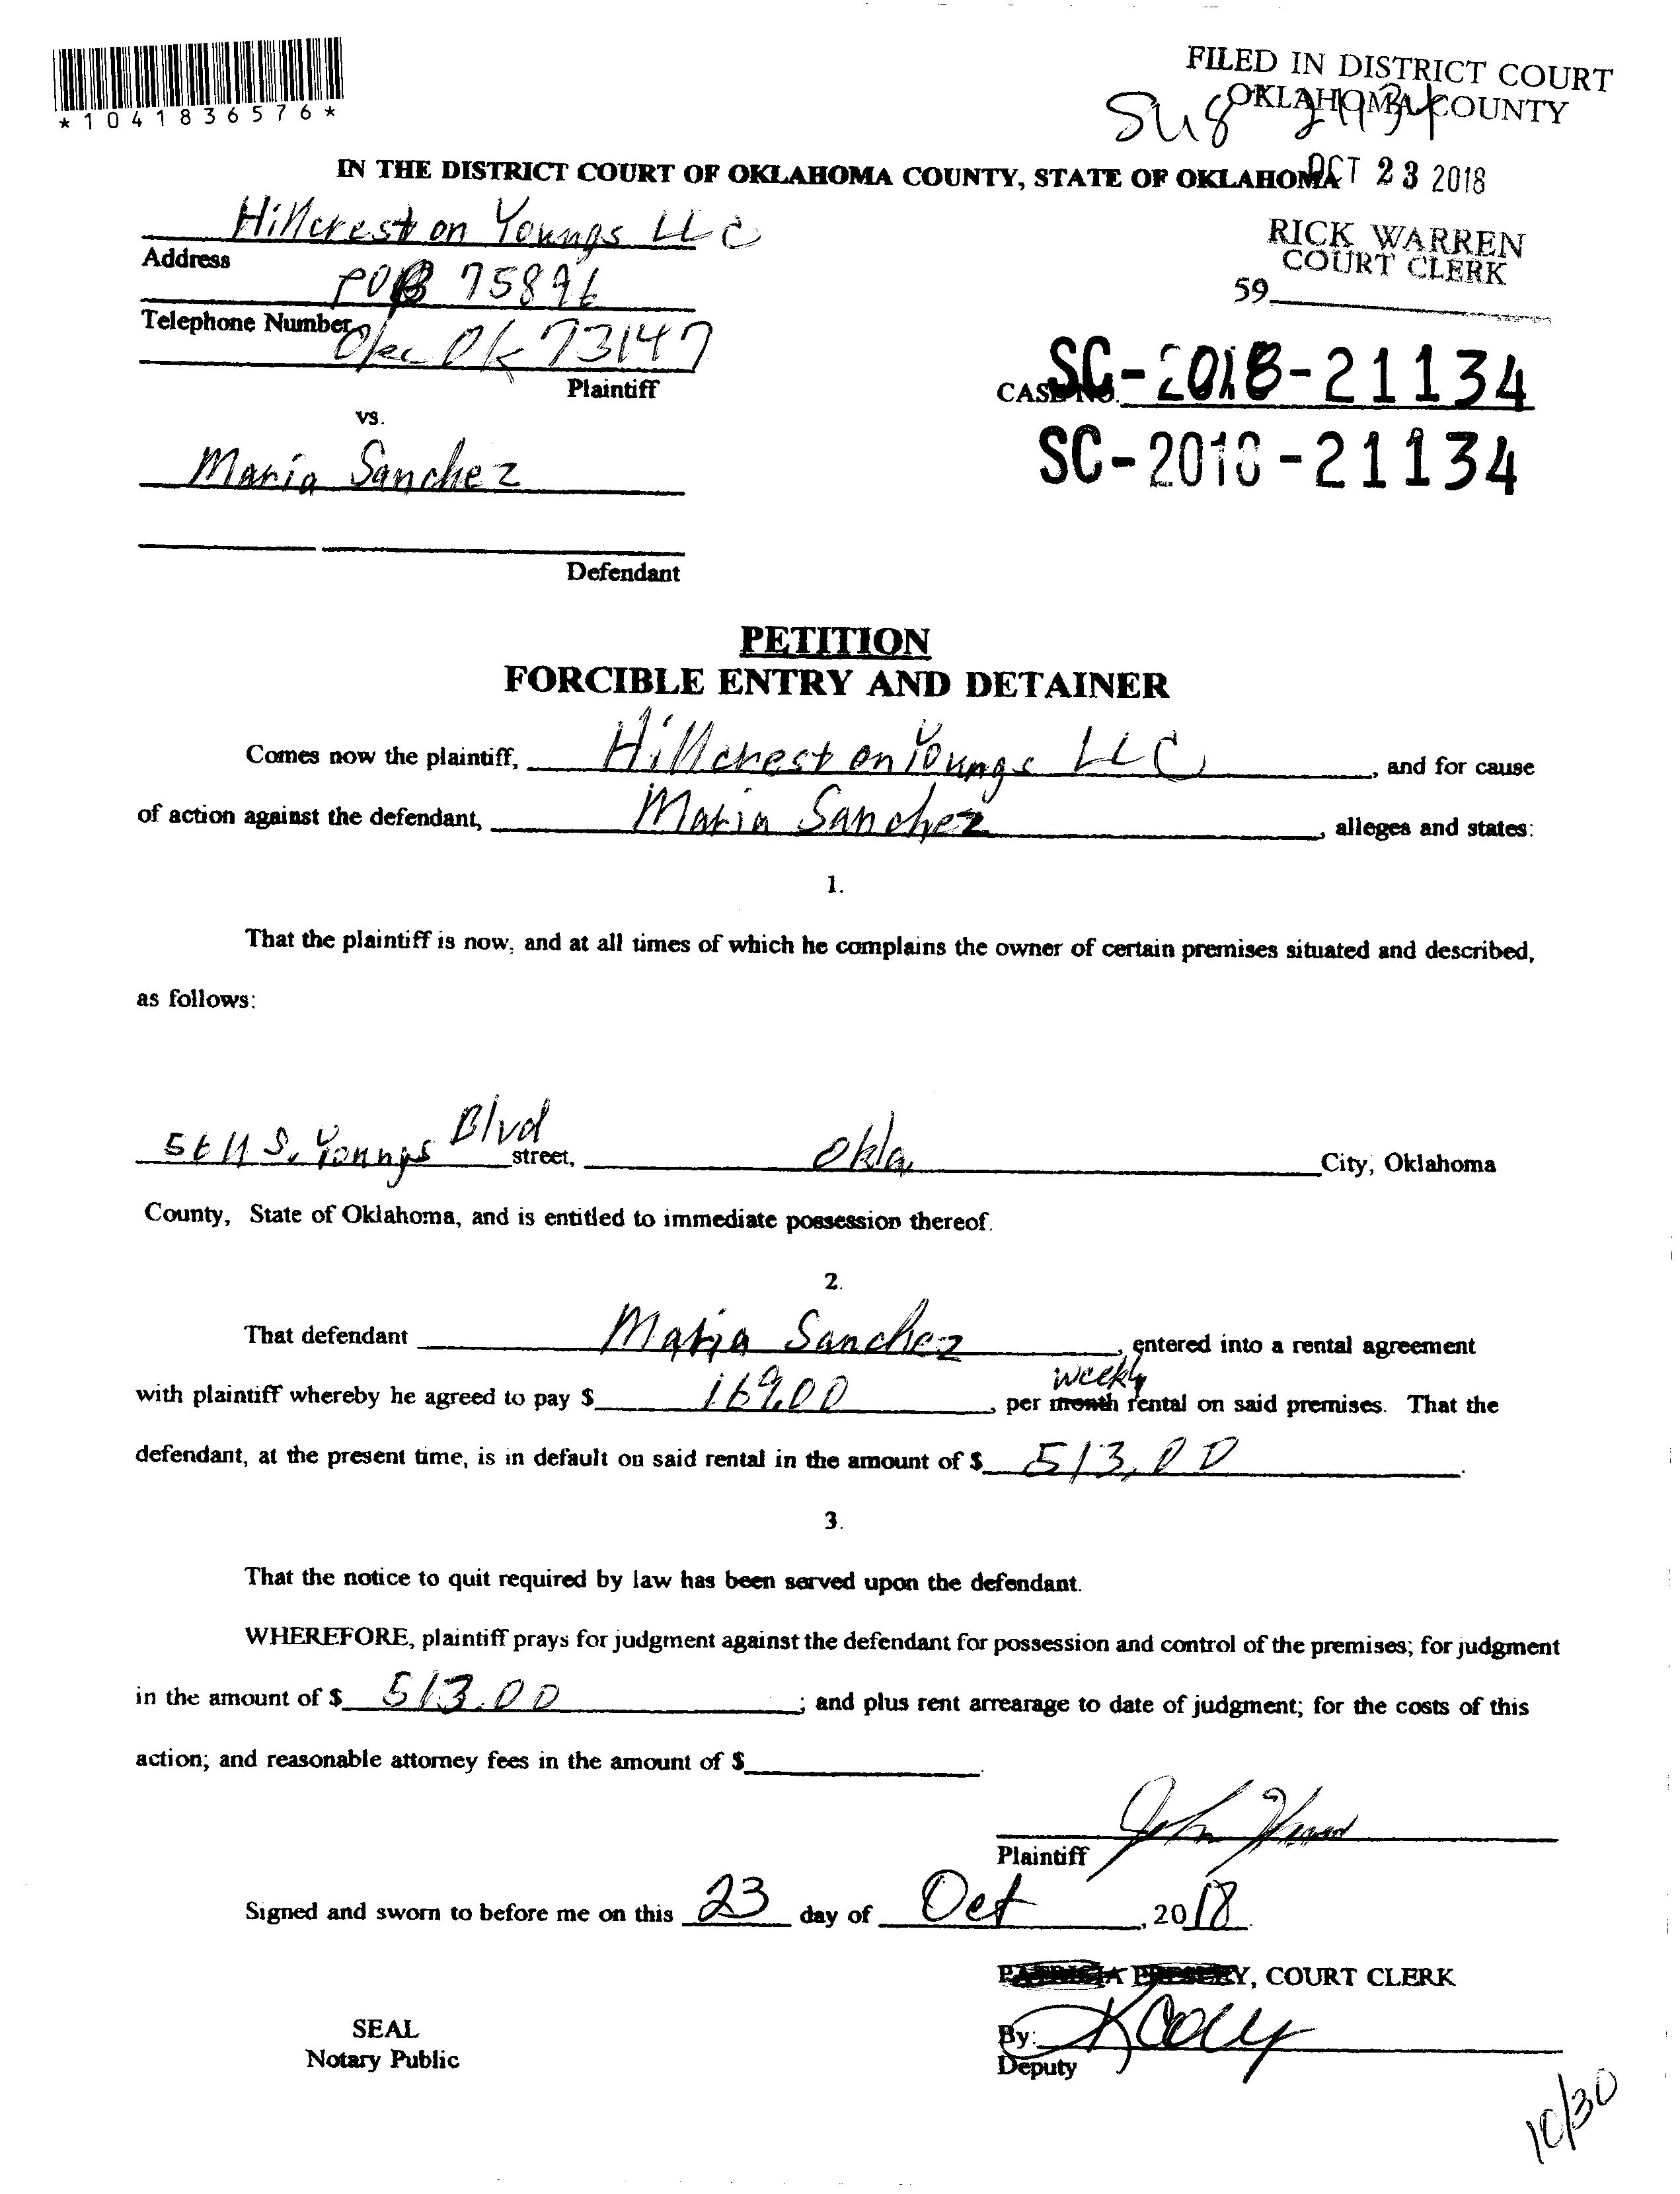 *1041836576*
FILED IN DISTRICT COURT
OKLAHOMA COUNTY
IN THE DISTRICT COURT OF OKLAHOMA COUNTY, STATE OF OKLAHOMA
OCT 23 2018
Hillcrest on Youngs LLC
RICK WARREN
COURT CLERK
Address
POB 75896
59
Telephone Number
Okc Ok 73147
Plaintiff
CASE NO. SC-2018-21134
SC-2018-21134
vs.
Maria Sanchez
Defendant
PETITION
FORCIBLE ENTRY AND DETAINER
Comes now the plaintiff, Hillcrest on Youngs LLC, and for cause
of action against the defendant, Maria Sanchez, alleges and states:
1.
That the plaintiff is now, and at all times of which he complains the owner of certain premises situated and described,
as follows:
S. Youngs Blvd street, Okla City, Oklahoma
County, State of Oklahoma, and is entitled to immediate possession thereof.
2.
That defendant Maria Sanchez, entered into a rental agreement
with plaintiff whereby he agreed to pay $ 169.00, per month weekly rental on said premises. That the
defendant, at the present time, is in default on said rental in the amount of $ 513.00.
3.
That the notice to quit required by law has been served upon the defendant.
WHEREFORE, plaintiff prays for judgment against the defendant for possession and control of the premises; for judgment
in the amount of $ 513.00; and plus rent arrearage to date of judgment; for the costs of this
action; and reasonable attorney fees in the amount of $
John
Plaintiff
Signed and sworn to before me on this 23 day of Oct, 2018.
PATRICIA PRESLEY, COURT CLERK
SEAL
Notary Public
By: K Cody
Deputy
10/30